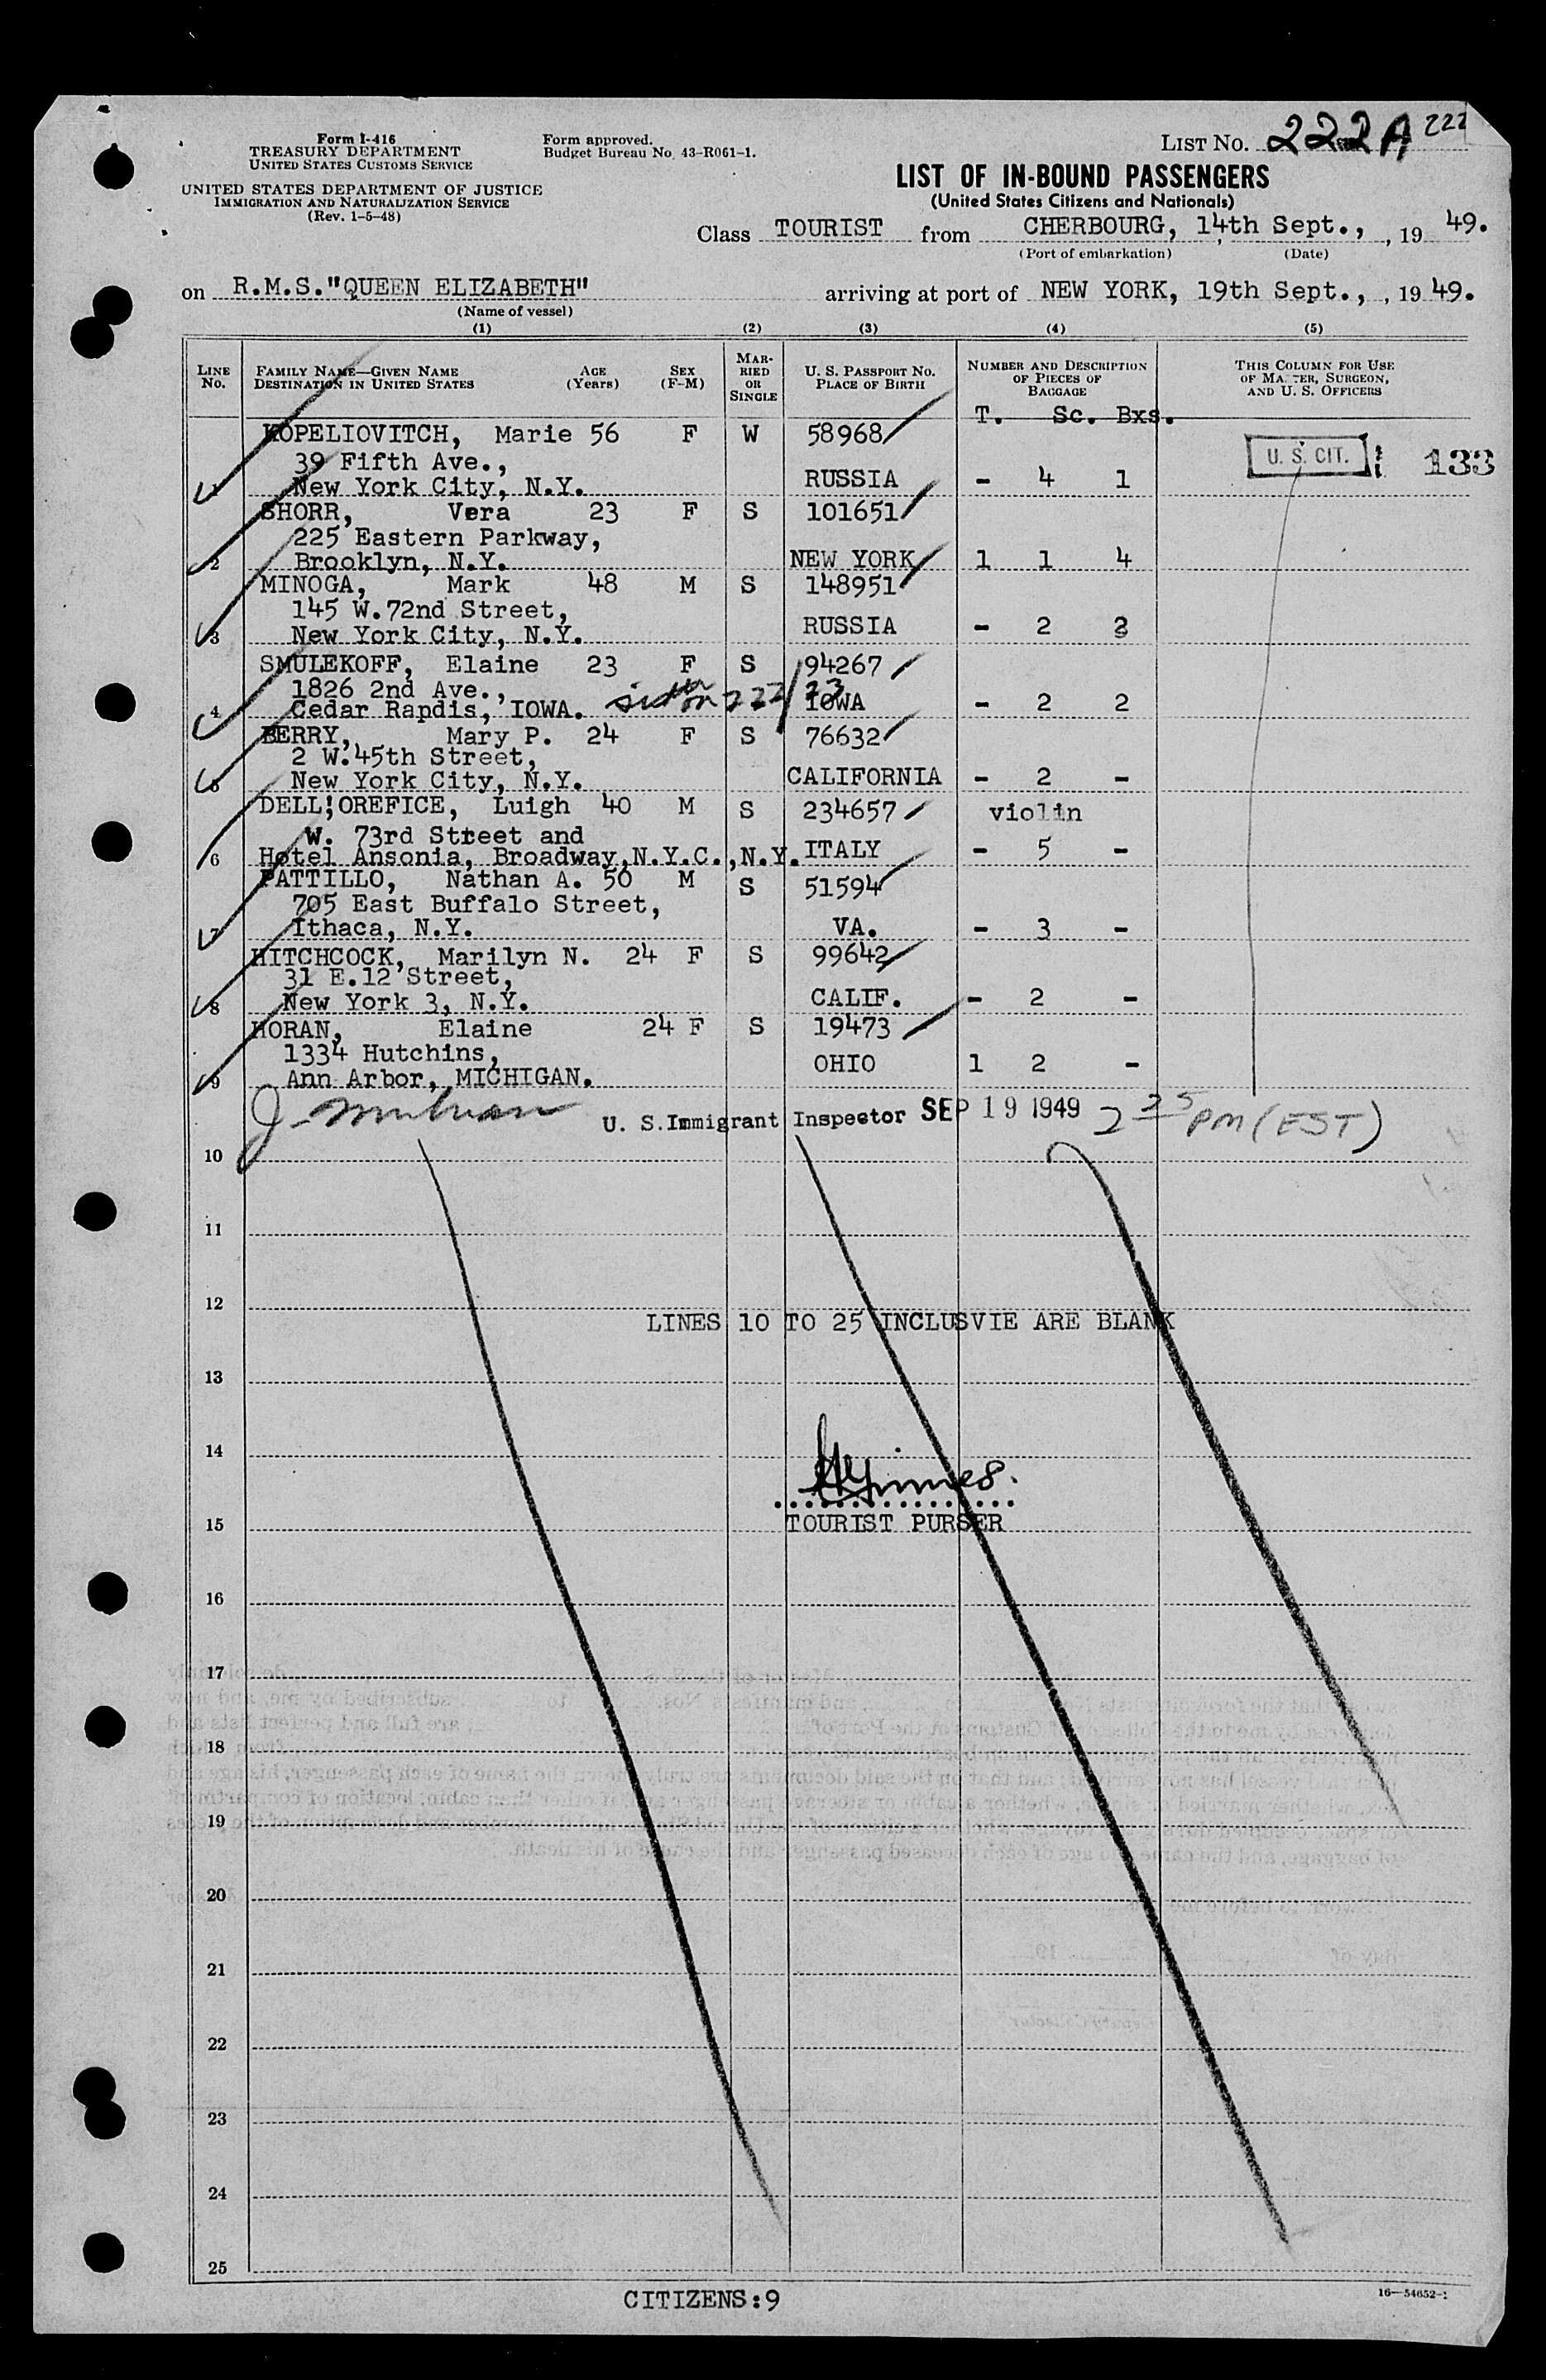 Form I-416
TREASURY DEPARTMENT
UNITED STATES CUSTOMS SERVICE
UNITED STATES DEPARTMENT OF JUSTICE
IMMIGRATION AND NATURALIZATION SERVICE
(Rev. 1-5-48)
Form approved.
Budget Bureau No. 43-R061-1.
LIST No. 222A 222
LIST OF IN-BOUND PASSENGERS
(United States Citizens and Nationals)
Class TOURIST from CHERBOURG, 14th Sept., , 19 49.
(Port of embarkation) (Date)
on R.M.S."QUEEN ELIZABETH" arriving at port of NEW YORK, 19th Sept., , 19 49.
(Name of vessel)
(1) (2) (3) (4) (5)
LINE No.
FAMILY NAME—GIVEN NAME
DESTINATION IN UNITED STATES
AGE (Years)
SEX (F-M)
MARRIED OR SINGLE
U. S. PASSPORT No.
PLACE OF BIRTH
NUMBER AND DESCRIPTION OF PIECES OF BAGGAGE
THIS COLUMN FOR USE OF MASTER, SURGEON, AND U. S. OFFICERS
T. Sc. Bxs.
KOPELIOVITCH, Marie 56 F W 58968
39 Fifth Ave.,
1 New York City, N.Y. RUSSIA - 4 1
U. S. CIT. 133
SHORR, Vera 23 F S 101651
225 Eastern Parkway,
2 Brooklyn, N.Y. NEW YORK 1 1 4
MINOGA, Mark 48 M S 148951
145 W.72nd Street,
3 New York City, N.Y. RUSSIA - 2 3
SMULEKOFF, Elaine 23 F S 94267
1826 2nd Ave.,
4 Cedar Rapdis, IOWA. 222/23 IOWA - 2 2
BERRY, Mary P. 24 F S 76632
2 W.45th Street,
5 New York City, N.Y. CALIFORNIA - 2 -
DELL'OREFICE, Luigh 40 M S 234657 violin
W. 73rd Street and
6 Hotel Ansonia, Broadway,N.Y.C.,N.Y. ITALY - 5 -
PATTILLO, Nathan A. 50 M S 51594
705 East Buffalo Street,
7 Ithaca, N.Y. VA. - 3 -
HITCHCOCK, Marilyn N. 24 F S 99642
31 E.12 Street,
8 New York 3, N.Y. CALIF. - 2 -
HORAN, Elaine 24 F S 19473
1334 Hutchins,
9 Ann Arbor, MICHIGAN. OHIO 1 2 -
U. S. Immigrant Inspector SEP 19 1949 2 35 PM (EST)
10
11
12
LINES 10 TO 25 INCLUSVIE ARE BLANK
13
14
TOURIST PURSER
15
16
17
18
19
20
21
22
23
24
25
CITIZENS:9
16—54652-1